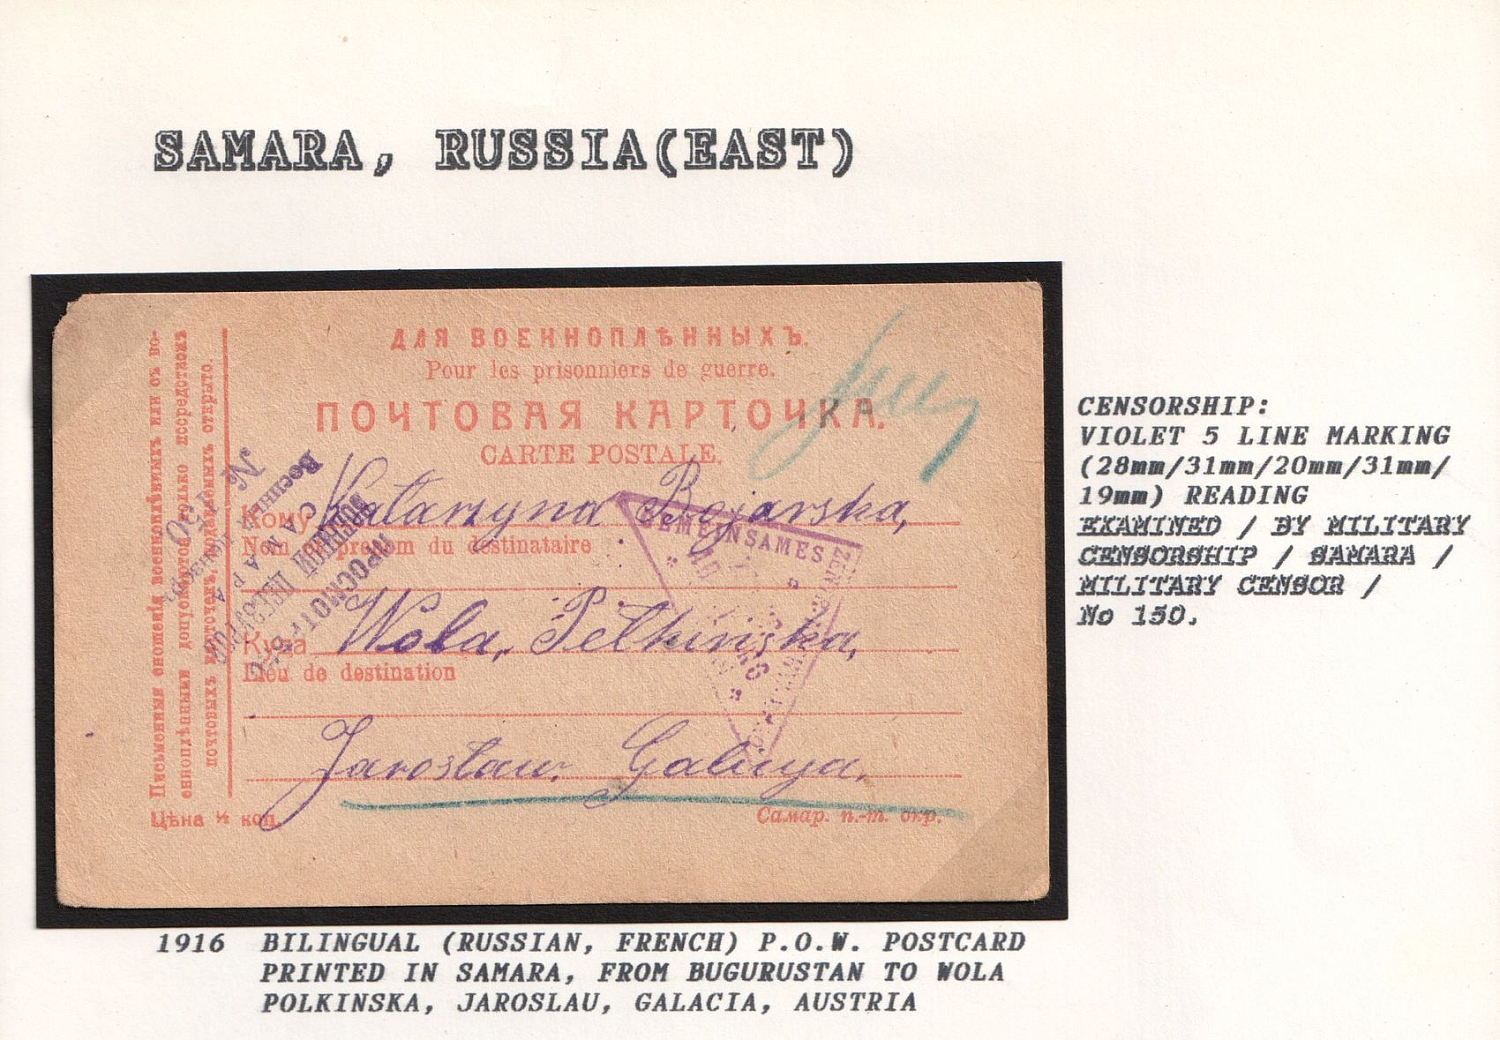 SAMARA, RUSSIA(EAST)
ДЛЯ ВОЕННОПЛѢННЫХЪ.
Pour les prisonniers de guerre.
ПОЧТОВАЯ КАРТОЧКА.
CARTE POSTALE.
Кому Katarzyna Bojarska,
Nom et prénom du destinataire
Куда Wola, Pełkińska,
Lieu de destination
Jarosław. Galicya.
Цѣна ½ коп.
Самар. п.-т. окр.
Письменныя сношенія военноплѣнныхъ или съ во-
енноплѣнными допускаются только посредствомъ
почтовыхъ карточекъ, подаваемыхъ открыто.
ПРОСМОТРѢНО
ВОЕННОЙ ЦЕНЗУРОЮ
САМАРА
Военный Цензоръ
№ 150
GEMEINSAMES
CENSORSHIP:
VIOLET 5 LINE MARKING
(28mm/31mm/20mm/31mm/
19mm) READING
EXAMINED / BY MILITARY
CENSORSHIP / SAMARA /
MILITARY CENSOR /
No 150.
1916 BILINGUAL (RUSSIAN, FRENCH) P.O.W. POSTCARD
PRINTED IN SAMARA, FROM BUGURUSTAN TO WOLA
POLKINSKA, JAROSLAU, GALACIA, AUSTRIA